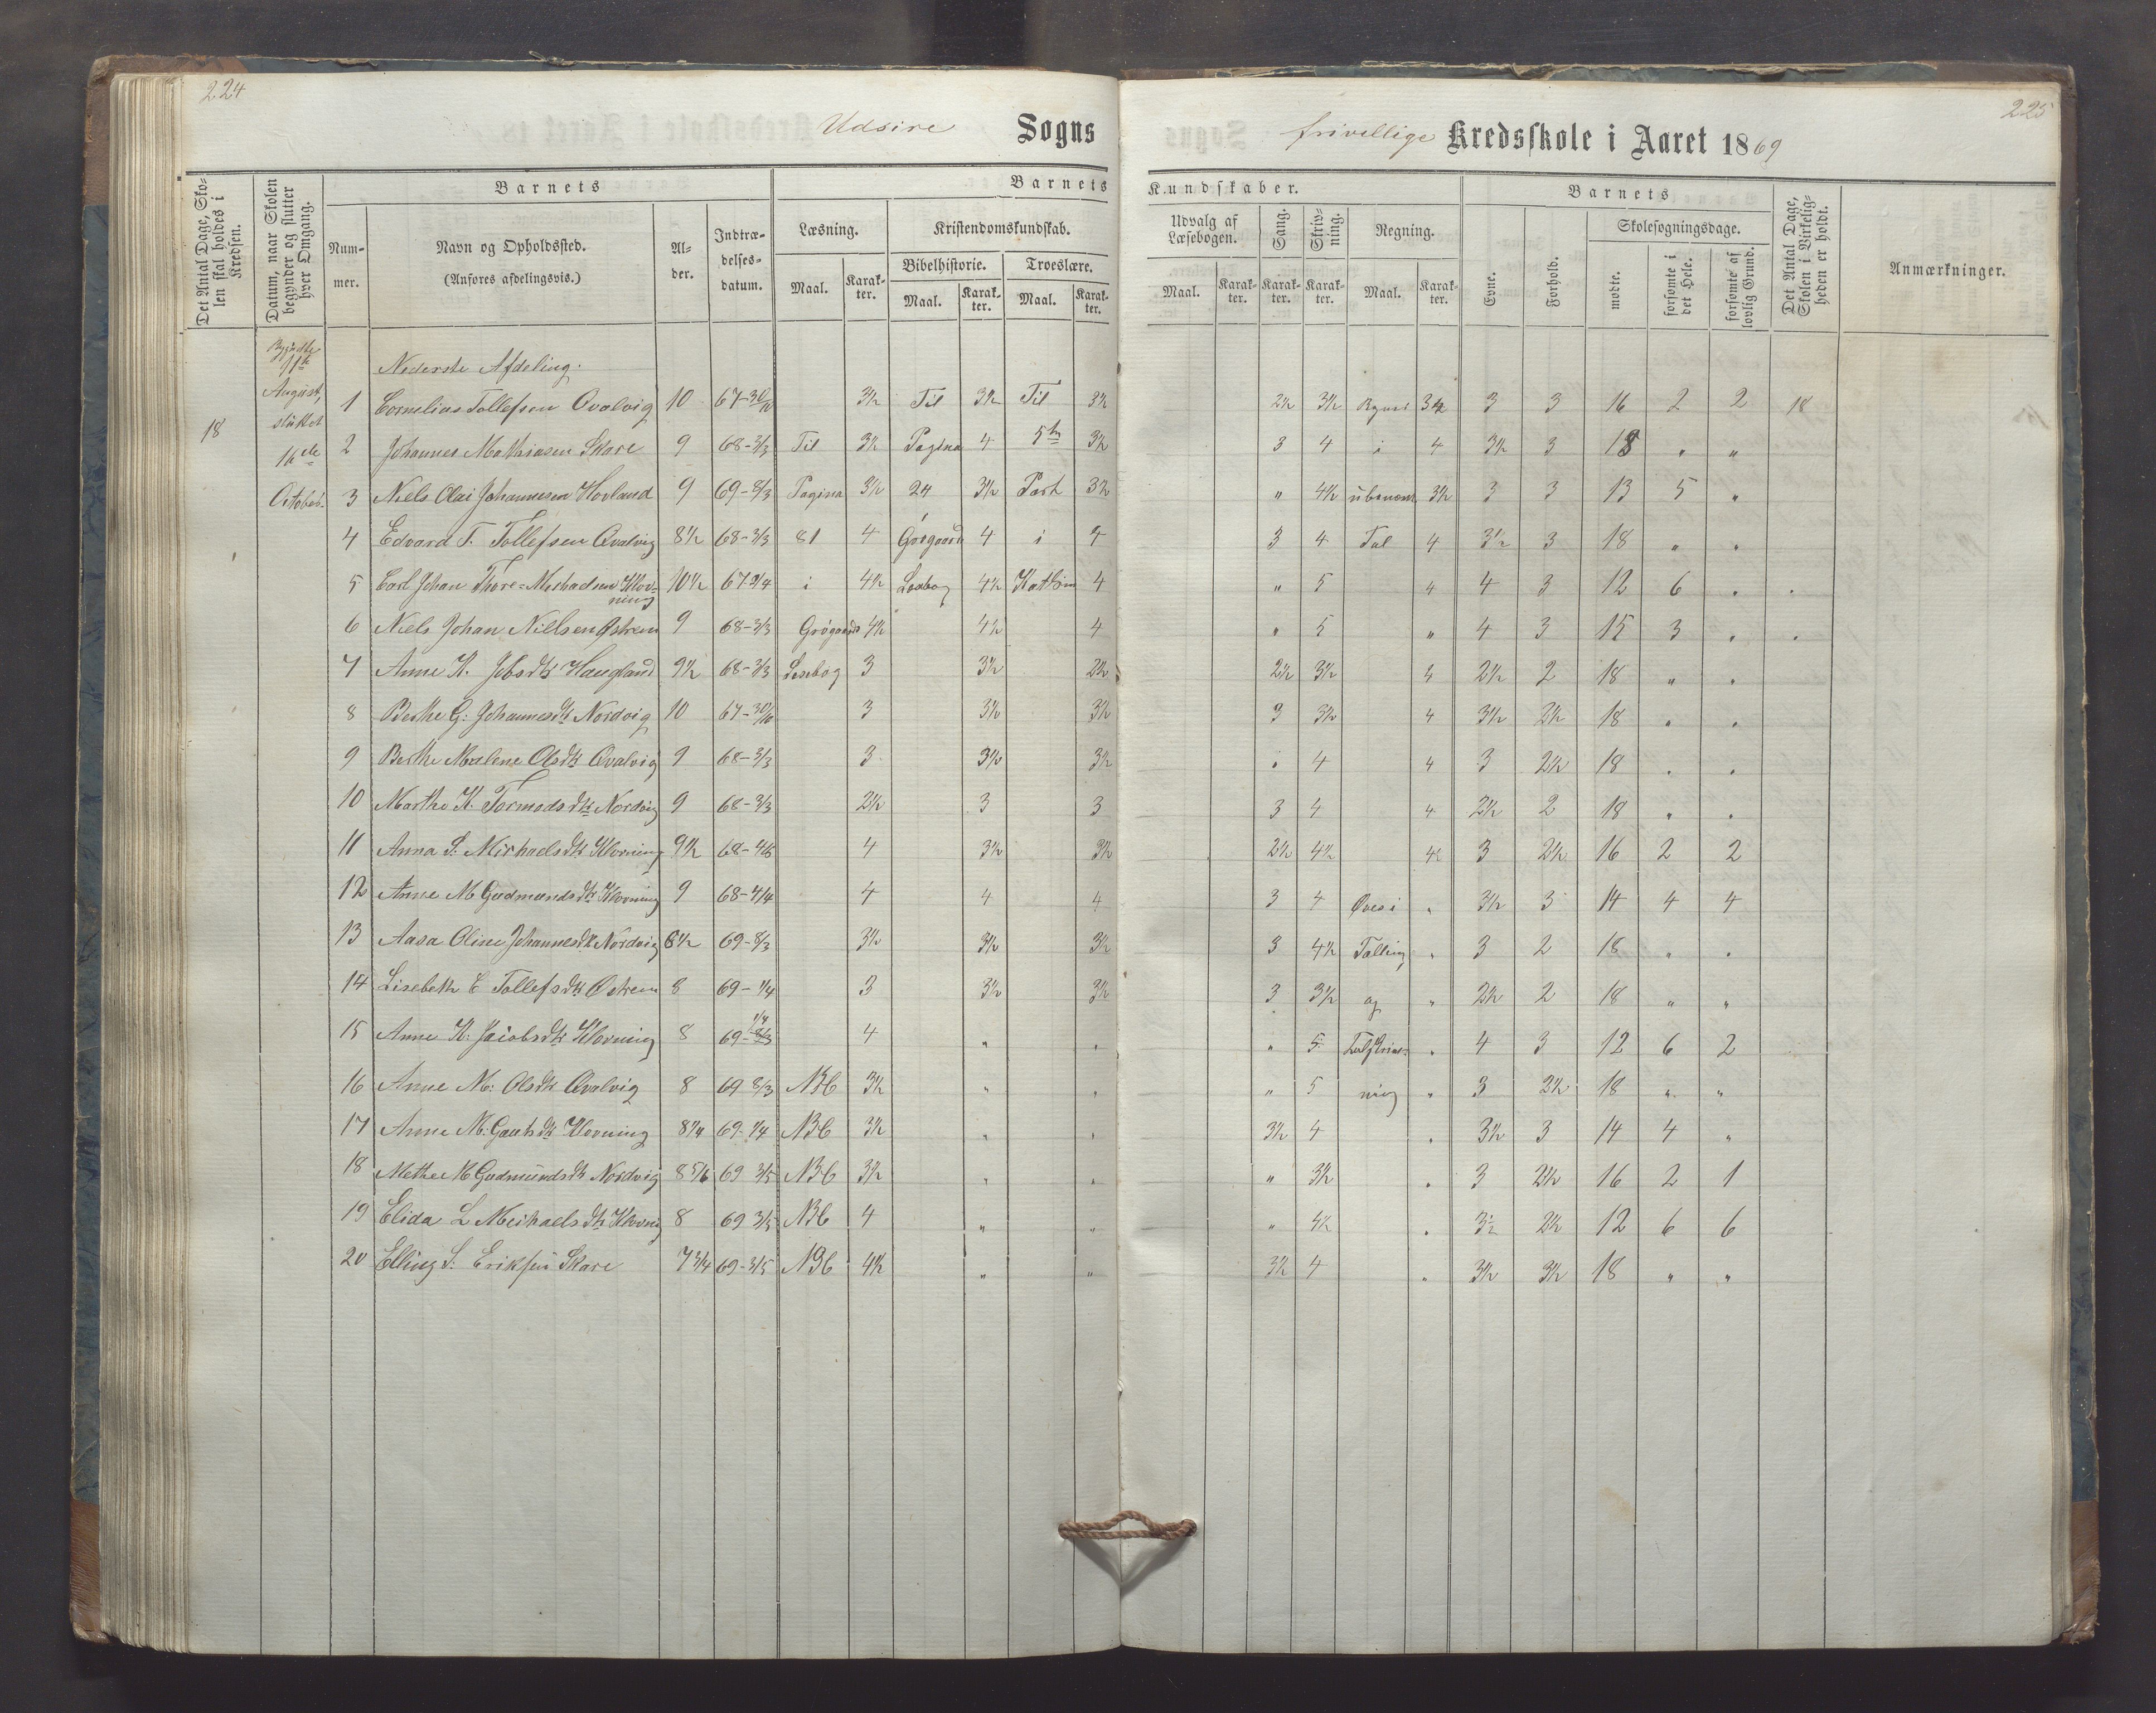 224
225
Udsire Sogns frivillige Kredsskole i Aaret 1869
Det Antal Dage, Skolen skal holdes i Kredsen.
Datum, naar Skolen begynder og slutter hver Omgang.
Barnets
Nummer.
Navn og Opholdssted.
(Anføres afdelingsvis.)
Alder.
Indtrædelsesdatum.
Barnets Kundskaber.
Læsning.
Maal. Karakter.
Kristendomskundskab.
Bibelhistorie. Troeslære.
Maal. Karakter. Maal. Karakter.
Udvalg af Læsebogen.
Maal. Karakter.
Sang.
Karakter.
Skrivning.
Karakter.
Regning.
Maal. Karakter.
Barnets
Evne.
Forhold.
Skolesøgningsdage.
mødte.
forsømte i det Hele.
forsømte af lovlig Grund.
Det Antal Dage, Skolen i Virkeligheden er holdt.
Anmærkninger.
18
August, sluttet
October
Nederste Afdeling.
1 Cornelius Tollefsen Qvalvig 10 67-30/10 3½ Til 3½ Til 3½ 2½ 3½ 3½ 3 3 16 2 2 18
2 Johannes Mathiasen Skare 9 68-3/3 Til 3½ Pagina 4 5te 3½ 3 4 i 4 3½ 3 18 " "
3 Niels Olai Johannesen Hovland 9 69-8/3 Pagina 3½ 24 3½ Part 3½ " 4½ ubenævnt 3½ 3 3 13 5 "
4 Edvard T. Tollefsen Qvalvig 8½ 68-3/3 81 4 4 i 4 3 4 Tal 4 3½ 3 18 " "
5 Carl Johan Thore-Michaelsen Klovning 10½ 67-2/4 i 4½ 4½ 4 " 5 4 4 3 12 6 "
6 Niels Johan Nielsen Østrem 9 68-3/3 4½ 4½ 4 " 5 " 4 3 15 3 "
7 Anne K. Jobsdtr Haugland 9½ 68-3/3 Lesebog 3 3½ 2½ 2½ 3½ 4 2½ 2 18 " "
8 Berthe G: Johannesdtr Nordvig 10 67-30/10 3 3½ 3½ 3 3½ 4 3½ 2½ 18 " "
9 Berthe Malene Olsdtr Qvalvig 9 68-3/3 3 3½ 3½ " 4 4 3 2½ 18 " "
10 Marthe K. Tormodsdtr Nordvig 9 68-3/3 2½ 3 3 3 4 4 2½ 2 18 " "
11 Anna S. Michaelsdtr Klovning 9½ 68-4/5 4 3½ 3½ 2½ 4½ 4½ 3 2½ 16 2 2
12 Anne M Gudmundsdtr Klovning 9 68-4/4 4 4 4 3 4 Øves i " 3½ 3 14 4 4
13 Aasa Oline Johannesdtr Nordvig 8½ 69-8/3 3½ 3½ 3½ 3 4½ Tælling " 3 2 18 " "
14 Lisebeth E Tollefsdtr Østrem 8 69-1/4 3 3½ 3½ 3 3½ og " 2½ 2 18 " "
15 Anne K. Jacobsdtr Klovning 8 69-1/4 4 " " " 5 Talskriv- " 4 3 12 6 2
16 Anne M: Olsdtr Qvalvig 8 69 8/3 ABC 3½ " " " 5 ning " 3 2½ 18 " "
17 Anne M: Gautsdtr Klovning 8¼ 69-1/4 ABC 3½ " " 3½ 4 " 3½ 3 14 4 "
18 Methe M Gudmundsdtr Nordvig 8 5/6 69 3/5 ABC 3½ " " " 3½ " 3 2½ 16 2 1
19 Elida L Michaelsdtr Klovning 8 69 3/5 ABC 4 " " " 4½ " 3½ 2½ 12 6 6
20 Elling S. Eriksen Skare 7¾ 69-3/5 ABC 4½ " " 3½ 4 " 3½ 3½ 18 " "